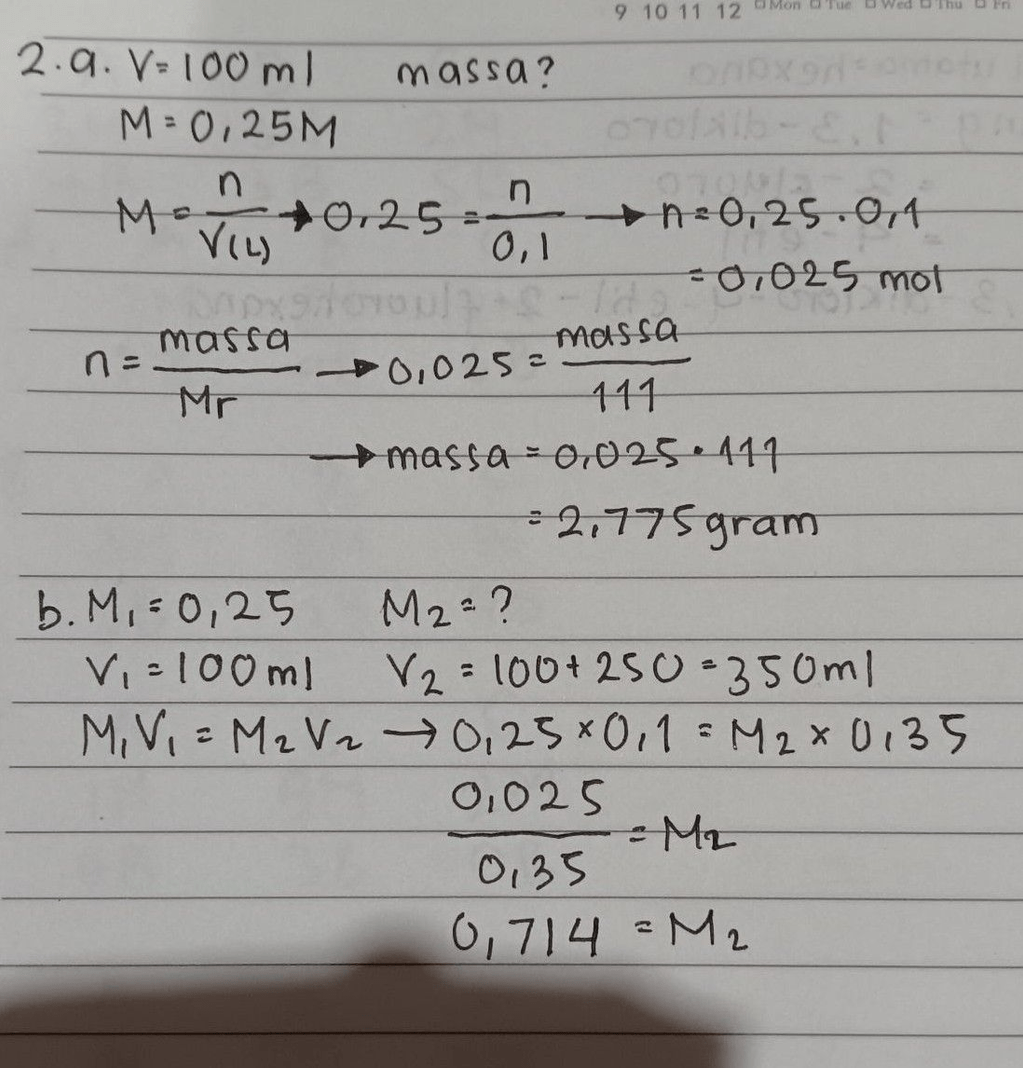 9 10 11 12 Mon Tue Wed Thu Fri
2.a. V=100 ml massa?
M=0,25M
M = n/V(L) → 0,25 = n/0,1 → n=0,25.0,1
=0,025 mol
n = massa/Mr → 0,025 = massa/111
→ massa = 0,025 • 111
= 2,775 gram
b. M₁ = 0,25 M₂ = ?
V₁ = 100 ml V₂ = 100+250 = 350ml
M₁V₁ = M₂V₂ → 0,25 × 0,1 = M₂ × 0,35
0,025/0,35 = M₂
0,714 = M₂